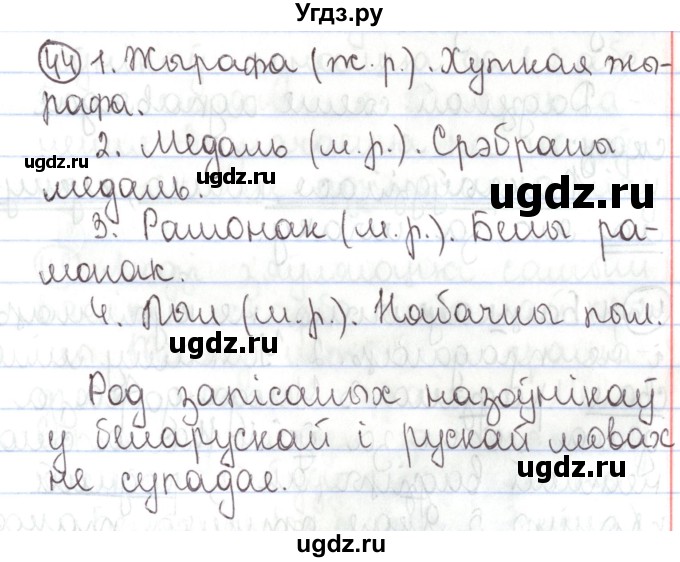 Угдз.ру
44 1. Жырафа (ж. р.). Хуткая жы-
рафа.
2. Медаль (м. р.). Срэбраны
ugdz.ru
ugdz.ru
медаль.
ugdz.ru
3. Рамонак (м. р.). Белы ра-
монак.
4. Пыл (м. р.). Набачны пыл.
ugdz.ru
Род запісаных назоўнікаў
у беларускай і рускай мовах
ugdz.ru
не супадае.
ugdz.ru